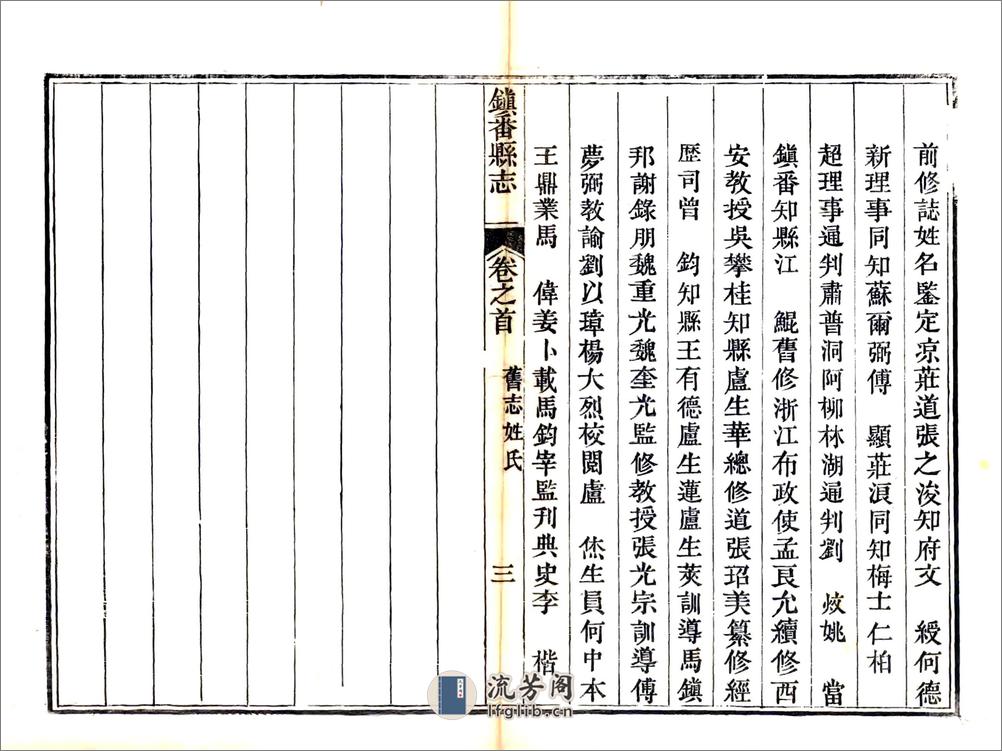 前修誌姓名鑒定凉莊道張之浚知府文　綬何德
新理事同知蘇爾弼傅　顯莊浪同知梅士仁柏
超理事通判肅普洞阿柳林湖通判劉　炆姚　當
鎮番知縣江　鯤舊修浙江布政使孟良允續修西
安教授吳攀桂知縣盧生華總修道張珆美纂修經
歷司曾　鈞知縣王有德盧生蓮盧生莢訓導馬鎮
邦謝錄朋魏重光魏奎光監修教授張光宗訓導傅
夢弼教諭劉以璋楊大烈校閱盧　烋生員何中本
王鼎業馬　偉姜卜載馬鈞宰監刊典史李　楷
鎮番縣志　卷之首　舊志姓氏　三
流芳阁
lfglib.cn